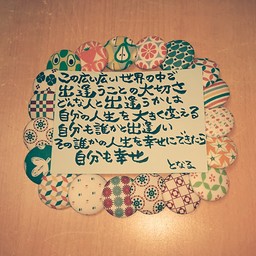 この広い広い世界の中で
出逢うことの大切さ
どんな人と出逢うかは
自分の人生を大きく変える
自分も誰かと出逢い
その誰かの人生を幸せにできたら
自分も幸せ
となる